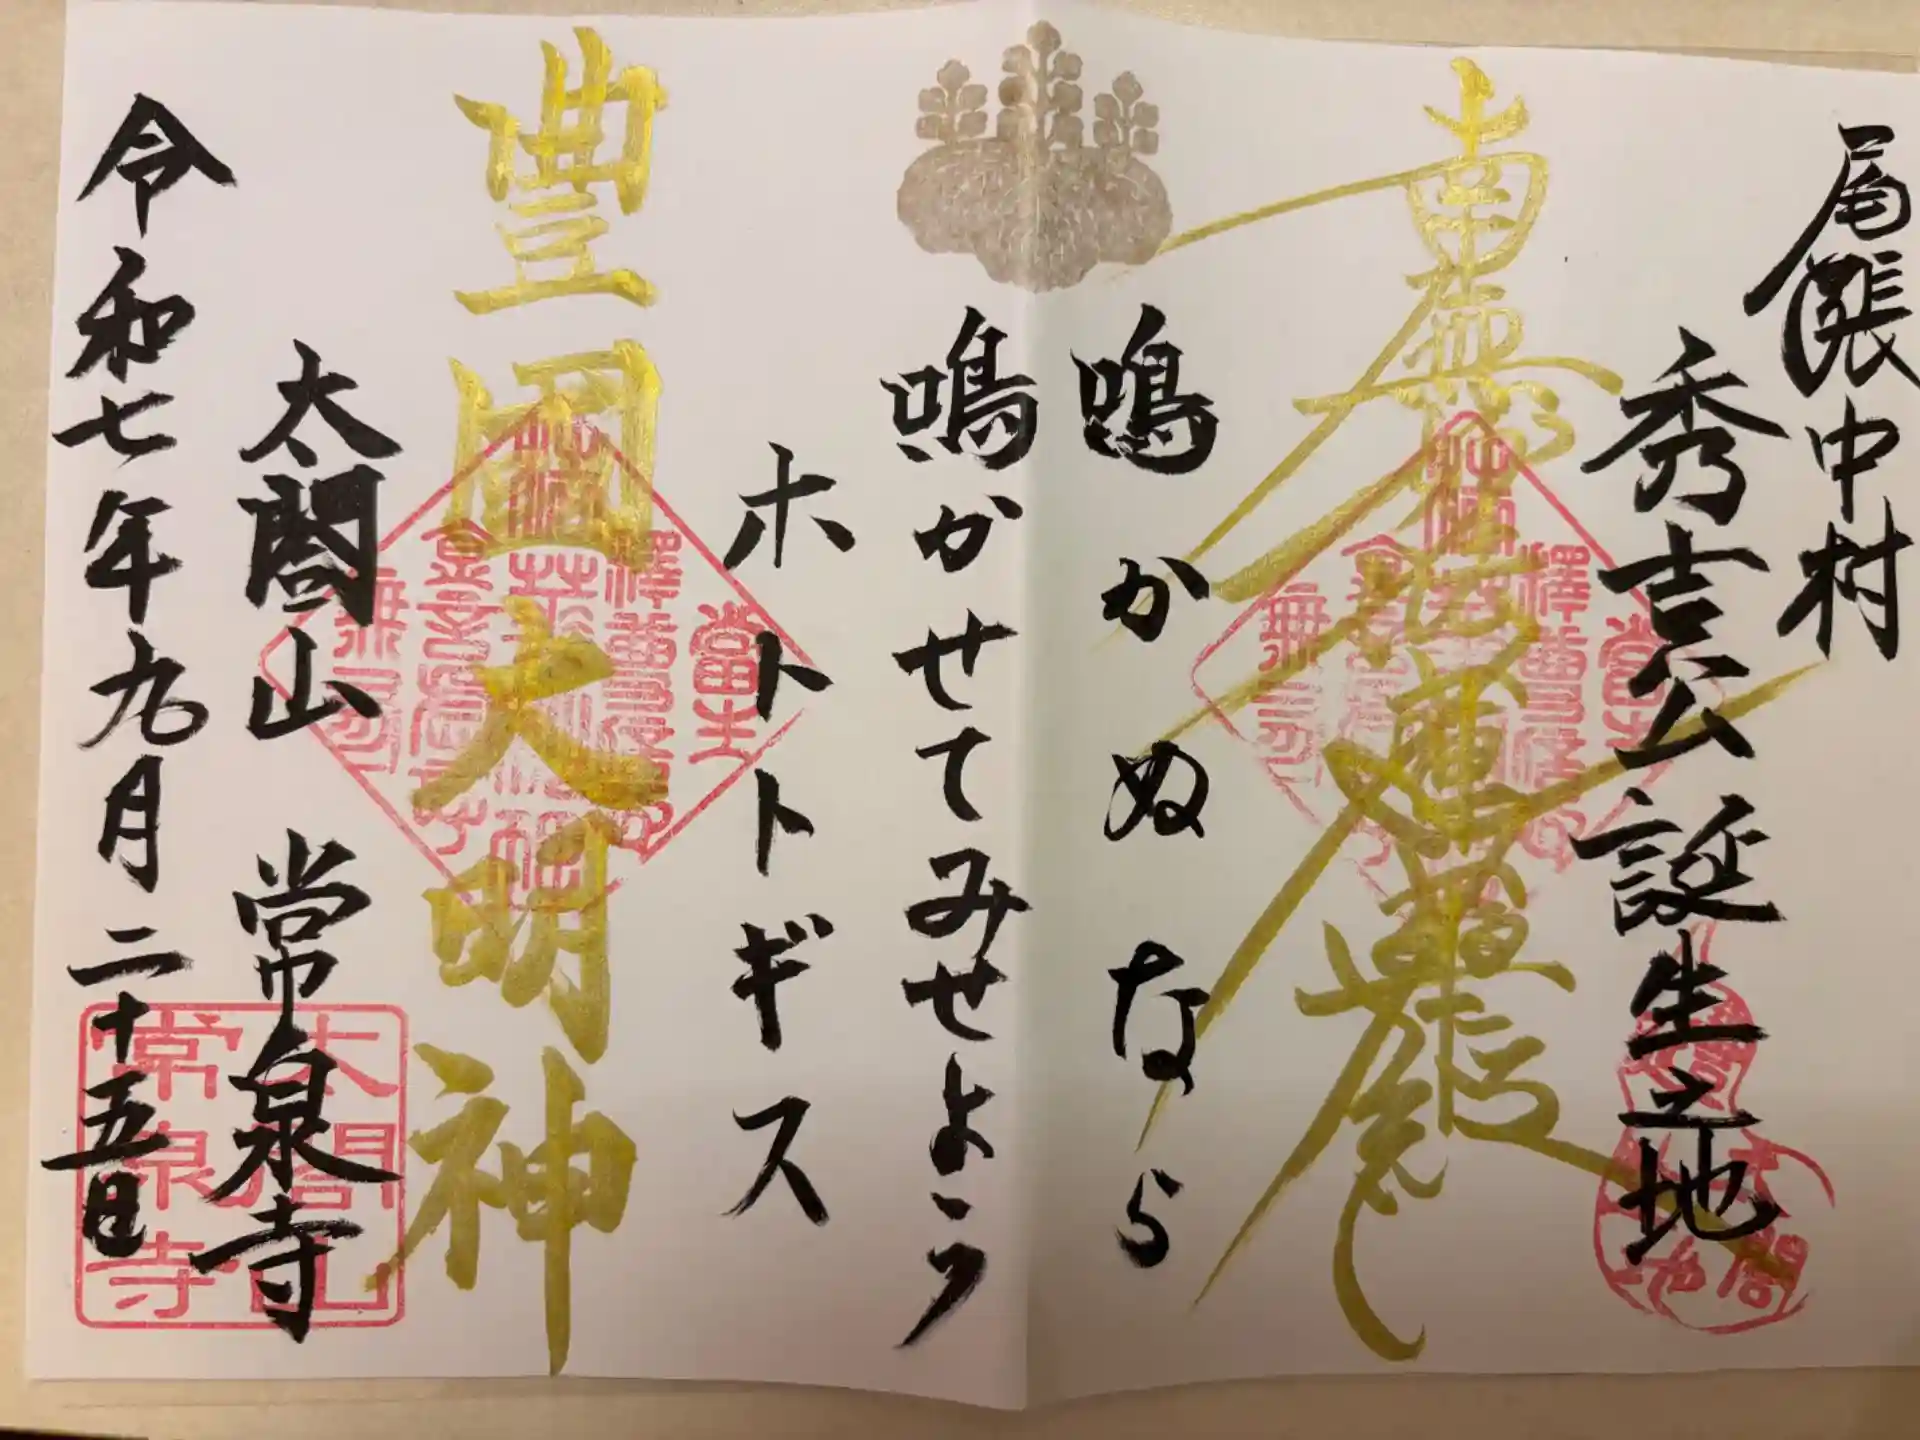 尾張中村
秀吉公誕生之地
南無妙法蓮華経
鳴かぬなら
鳴かせてみせよう
ホトトギス
豊国大明神
太閤山 常泉寺
令和七年九月二十五日
太閤山
常泉寺